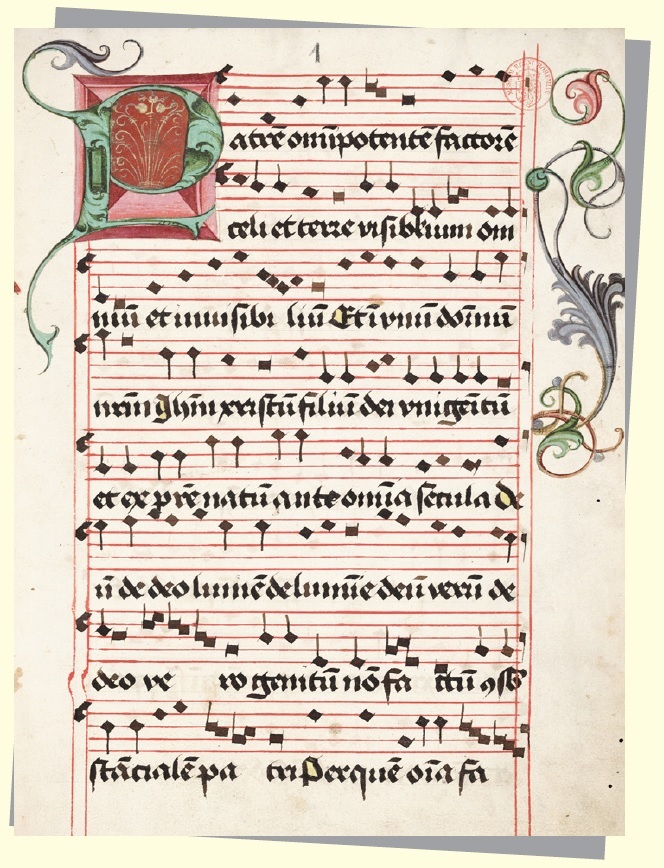 1
Patrē om̄ipotentē factorē
celi et terre visibilium om̄
niū et inuisibi liū Et ī vnū dominū
nr̄m ihm̄ xristū filiū dei vnigenitū
et ex pr̄e natū ante om̄ia secula de
ū de deo lumē de lumīe deū verū de
deo ve ro genitū nō fa ctū ꝯsb
stācialē pa tri Per quē oīa fa